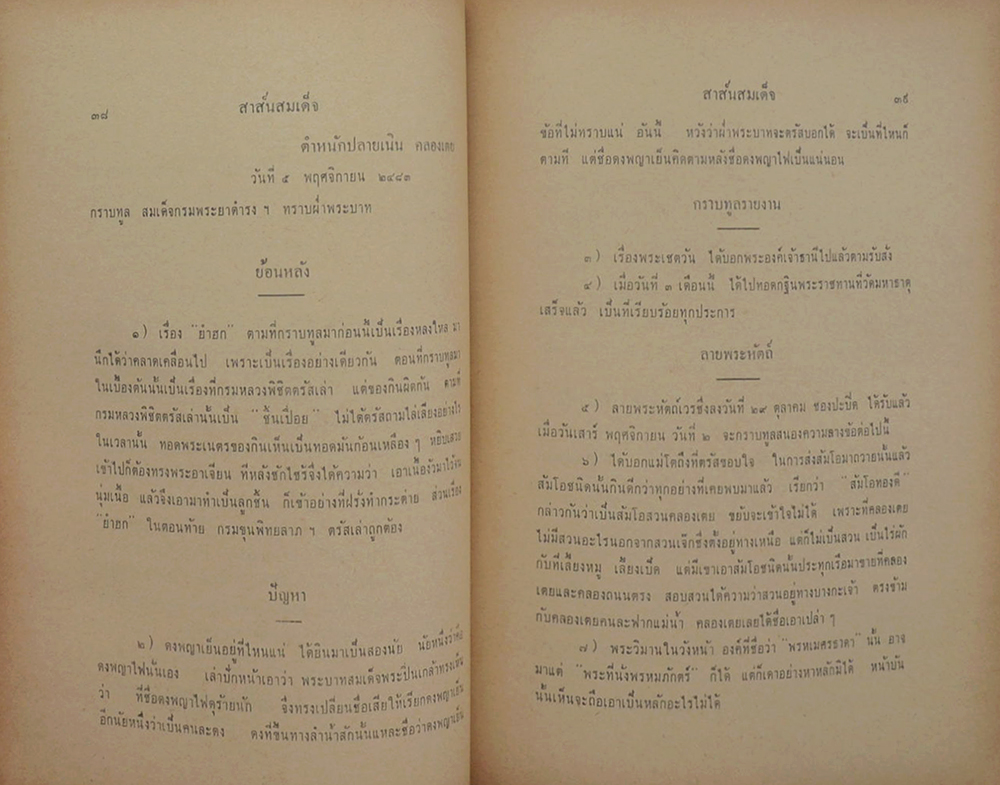 ๓๘
สาส์นสมเด็จ
ตำหนักปลายเนิน คลองเตย
วันที่ ๕ พฤศจิกายน ๒๔๘๓
กราบทูล สมเด็จกรมพระยาดำรง ฯ ทราบฝ่าพระบาท
ย้อนหลัง
๑) เรื่อง "ยำฮก" ตามที่กราบทูลมาก่อนนี้เป็นเรื่องหลงใหล มา
นึกได้ว่าคลาดเคลื่อนไป เพราะเป็นเรื่องอย่างเดียวกัน ตอนที่กราบทูลมา
ในเบื้องต้นนั้นเป็นเรื่องที่กรมหลวงพิชิตตรัสเล่า แต่ของกินผิดกัน ตามที่
กรมหลวงพิชิตตรัสเล่านั้นเป็น "ชิ้นเปื่อย" ไม่ได้ตรัสถามไล่เลียงอย่างไร
ในเวลานั้น ทอดพระเนตรของกินเห็นเป็นทอดมันก้อนเหลือง ๆ หยิบเสวย
เข้าไปก็ต้องทรงพระอาเจียน ทีหลังซักไซร้จึงได้ความว่า เอาเนื้องัวมาไว้จน
นุ่มเนื้อ แล้วจึงเอามาทำเป็นลูกชิ้น ก็เช้าอย่างที่ฝรั่งทำกระต่าย ส่วนเรื่อง
"ยำฮก" ในตอนท้าย กรมขุนพิทยลาภ ฯ ตรัสเล่าถูกต้อง
ปัญหา
๒) ดงพญาเย็นอยู่ที่ไหนแน่ ได้ยินมาเป็นสองนัย นัยหนึ่งว่าคือ
ดงพญาไฟนั่นเอง เล่าปักหน้าเอาว่า พระบาทสมเด็จพระปิ่นเกล้าทรงเห็น
ว่า ที่ชื่อดงพญาไฟดุร้ายนัก จึงทรงเปลี่ยนชื่อเสียให้เรียกดงพญาเย็น
อีกนัยหนึ่งว่าเป็นคนละดง ดงที่ขึ้นทางลำน้ำสักนั้นแหละชื่อว่าดงพญาเย็น
สาส์นสมเด็จ
๓๙
ข้อที่ไม่ทราบแน่ อันนี้ หวังว่าฝ่าพระบาทจะตรัสบอกได้ จะเป็นที่ไหนก็
ตามที แต่ชื่อดงพญาเย็นคิดตามหลังชื่อดงพญาไฟเป็นแน่นอน
กราบทูลรายงาน
๓) เรื่องพระเชตวัน ได้บอกพระองค์เจ้าธานีไปแล้วตามรับสั่ง
๔) เมื่อวันที่ ๓ เดือนนี้ ได้ไปทอดกฐินพระราชทานที่วัดมหาธาตุ
เสร็จแล้ว เป็นที่เรียบร้อยทุกประการ
ลายพระหัตถ์
๕) ลายพระหัตถ์เวรซึ่งลงวันที่ ๒๙ ตุลาคม ซองปะปิด ได้รับแล้ว
เมื่อวันเสาร์ พฤศจิกายน วันที่ ๒ จะกราบทูลสนองความลางข้อต่อไปนี้
๖) ได้บอกแม่โตถึงที่ตรัสขอบใจ ในการส่งส้มโอมาถวายนั้นแล้ว
ส้มโอชนิดนั้นกินดีกว่าทุกอย่างที่เคยพบมาแล้ว เรียกว่า "ส้มโอทองดี"
กล่าวกันว่าเป็นส้มโอสวนคลองเตย ขยับจะเข้าใจไม่ได้ เพราะที่คลองเตย
ไม่มีสวนอะไรนอกจากสวนเจ๊กซึ่งตั้งอยู่ทางเหนือ แต่ก็ไม่เป็นสวน เป็นไร่ผัก
กับที่เลี้ยงหมู เลี้ยงเป็ด แต่มีเขาเอาส้มโอชนิดนั้นประทุกเรือมาขายที่คลอง
เตยและคลองถนนตรง สอบสวนได้ความว่าสวนอยู่ทางบางกะเจ้า ตรงข้าม
กับคลองเตยคนละฟากแม่น้ำ คลองเตยเลยได้ชื่อเอาเปล่า ๆ
๗) พระวิมานในวังหน้า องค์ที่ชื่อว่า "พรหเมศรธาดา" นั้น อาจ
มาแต่ "พระที่นั่งพรหมภักตร์" ก็ได้ แต่ก็เดาอย่างหาหลักมิได้ หน้าบัน
นั้นเห็นจะถือเอาเป็นหลักอะไรไม่ได้